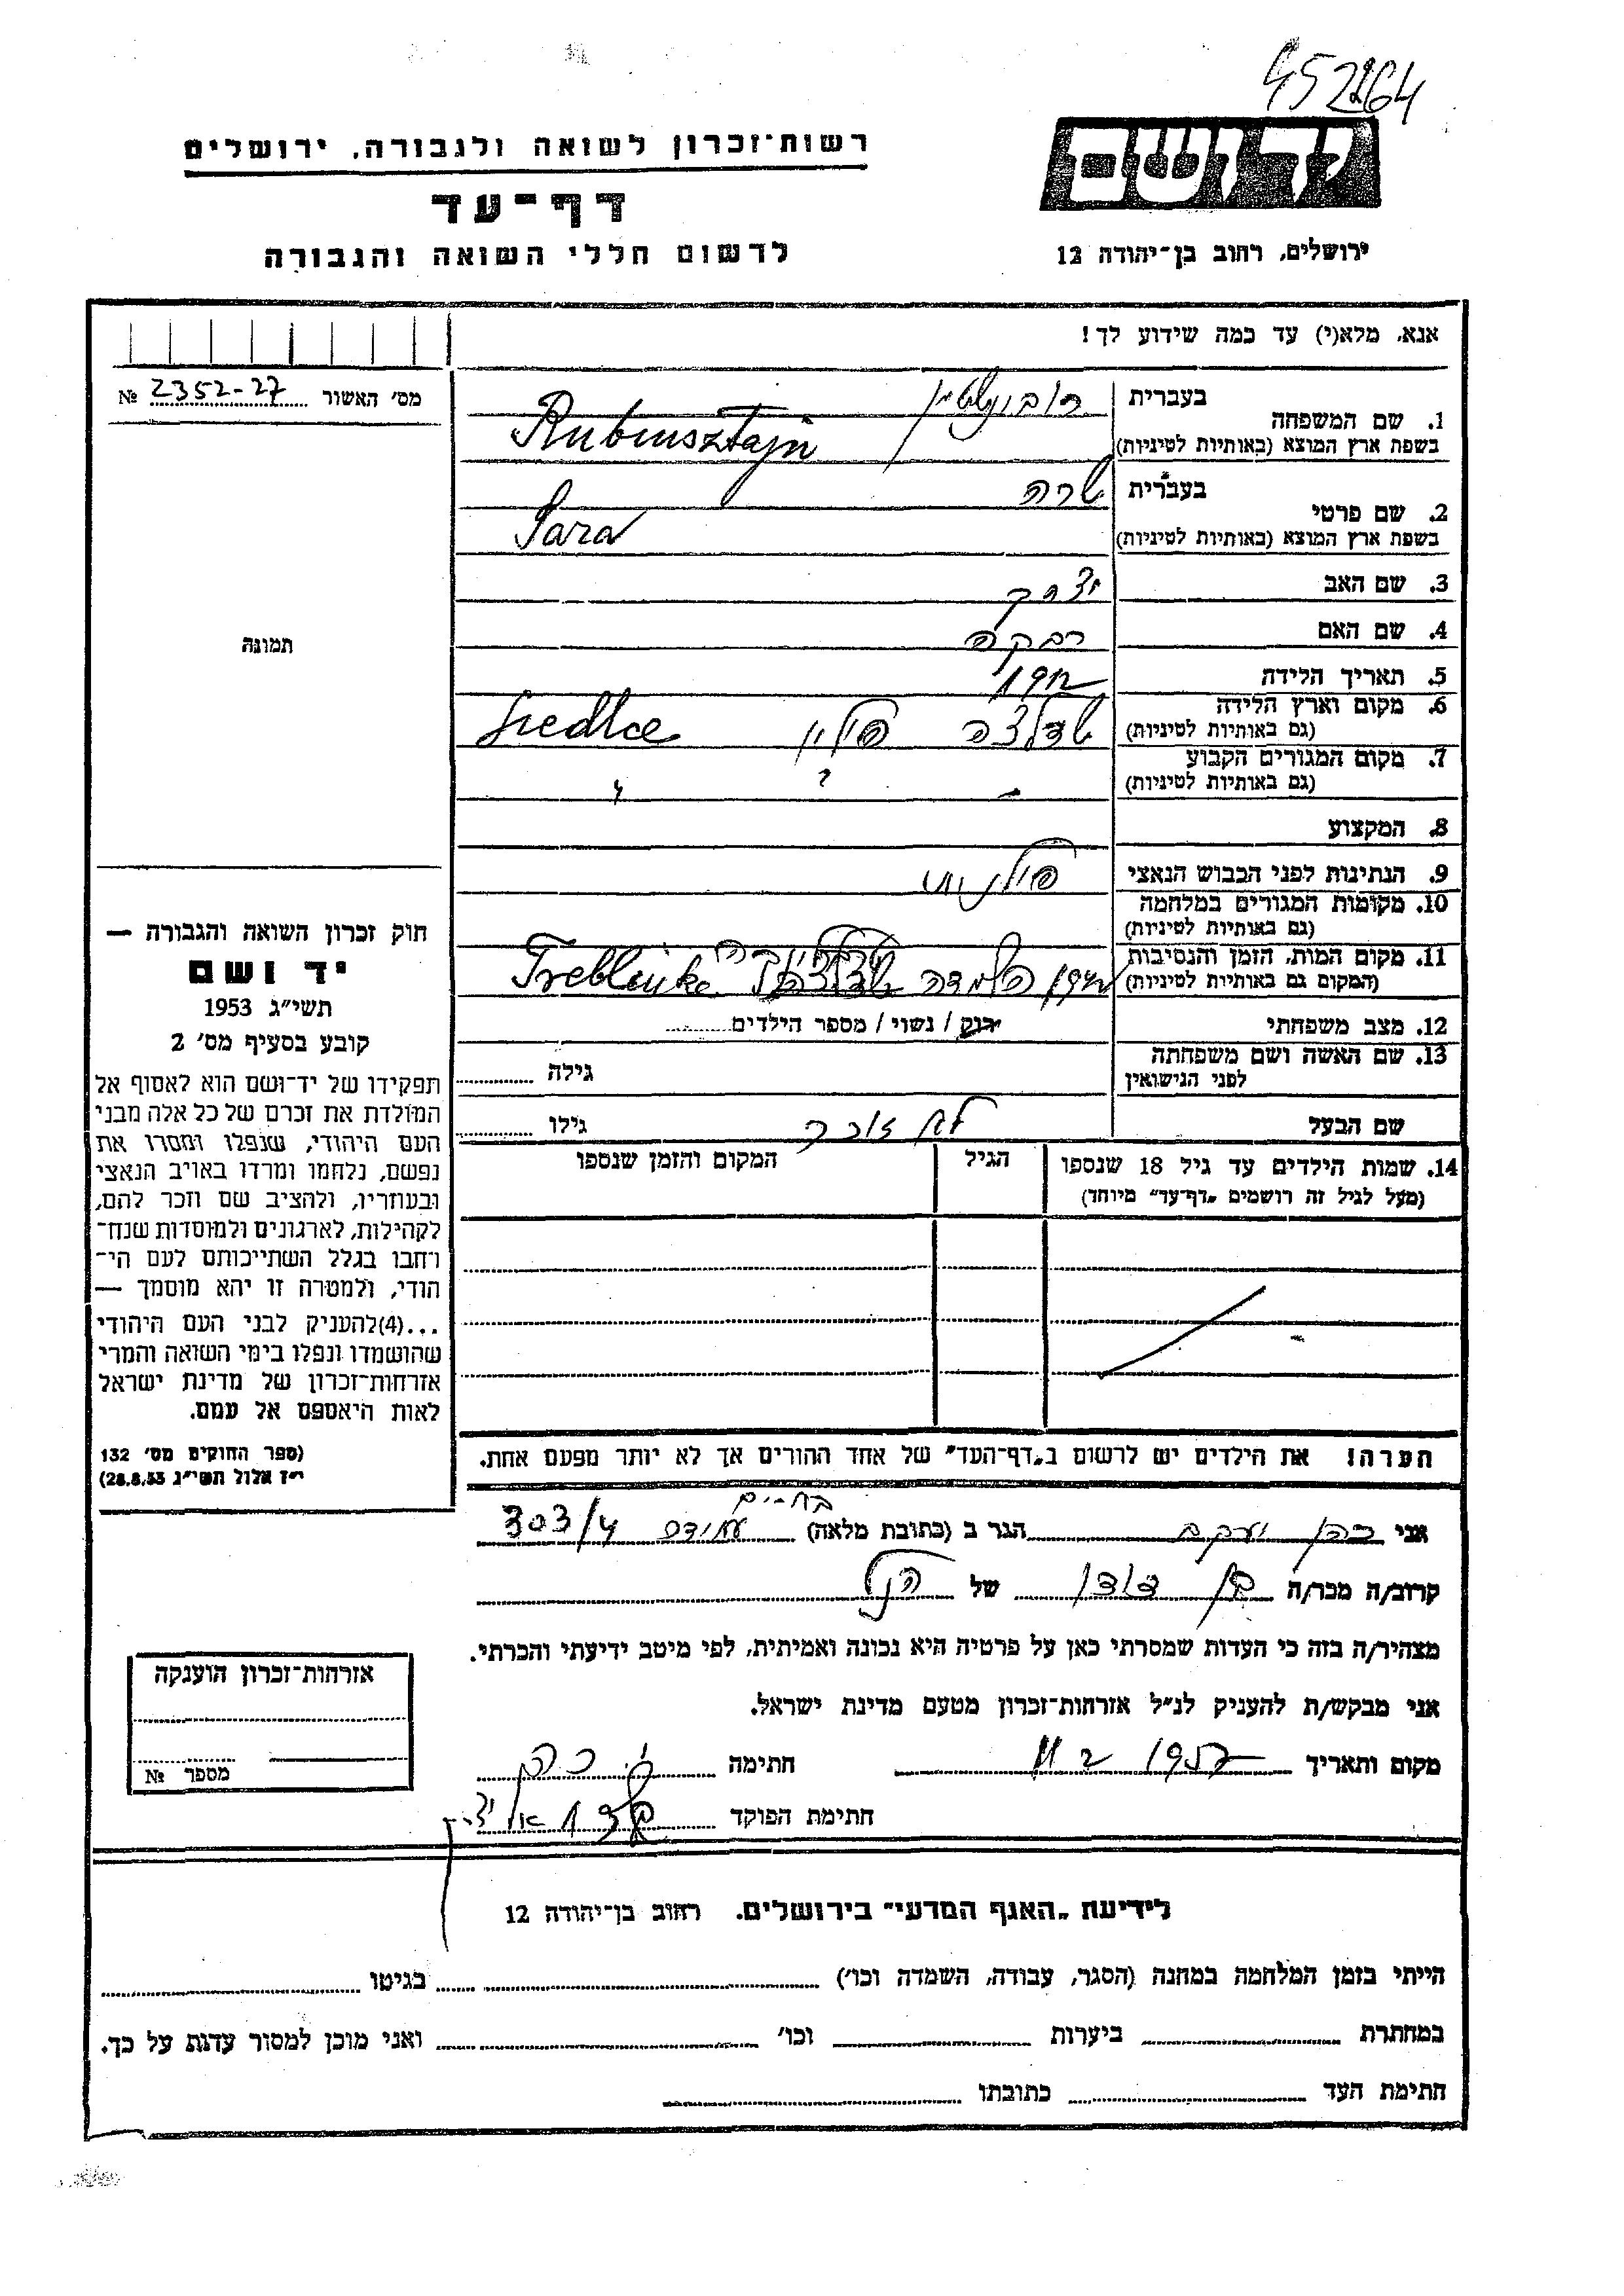 452264
יד ושם
ירושלים, רחוב בן־יהודה 12
רשות־זכרון לשואה ולגבורה, ירושלים
דף־עד
לרשום חללי השואה והגבורה
אנא, מלא(י) עד כמה שידוע לך!
מס׳ האשור № 2352-27
תמונה
חוק זכרון השואה והגבורה —
יד ושם
תשי״ג 1953
קובע בסעיף מס׳ 2
תפקידו של יד־ושם הוא לאסוף אל
המולדת את זכרם של כל אלה מבני
העם היהודי, שנפלו ומסרו את
נפשם, נלחמו ומרדו באויב הנאצי
ובעוזריו, ולהציב שם וזכר להם,
לקהילות, לארגונים ולמוסדות שנח־
רבו בגלל השתייכותם לעם הי־
הודי, ולמטרה זו יהא מוסמך —
...(4)להעניק לבני העם היהודי
שהושמדו ונפלו בימי השואה והמרי
אזרחות־זכרון של מדינת ישראל
לאות היאספם אל עמם.
(ספר החוקים מס׳ 132
י״ז אלול תשי״ג 28.8.53)
1. שם המשפחה בעברית רובינשטיין
בשפת ארץ המוצא (באותיות לטיניות) Rubinsztajn
2. שם פרטי בעברית שרה
בשפת ארץ המוצא (באותיות לטיניות) Sara
3. שם האב יצחק
4. שם האם רבקה
5. תאריך הלידה
6. מקום וארץ הלידה שדלצה פולין Siedlce
(גם באותיות לטיניות)
7. מקום המגורים הקבוע
(גם באותיות לטיניות)
8. המקצוע
9. הנתינות לפני הכבוש הנאצי פולנית
10. מקומות המגורים במלחמה
(גם באותיות לטיניות)
11. מקום המות, הזמן והנסיבות טרבלינקה Treblinke
(המקום גם באותיות לטיניות)
12. מצב משפחתי רווק / נשוי / מספר הילדים
13. שם האשה ושם משפחתה
לפני הנישואין גילה
שם הבעל לא זוכר גילו
14. שמות הילדים עד גיל 18 שנספו הגיל המקום והזמן שנספו
(מעל לגיל זה רושמים „דף־עד״ מיוחד)
הערה! את הילדים יש לרשום ב„דף־העד״ של אחד ההורים אך לא יותר מפעם אחת.
אני כהן יעקב הגר ב (כתובת מלאה) 303/4
קרוב/ה מכר/ה בן דודן של הנ״ל
מצהיר/ה בזה כי העדות שמסרתי כאן על פרטיה היא נכונה ואמיתית, לפי מיטב ידיעתי והכרתי.
אני מבקש/ת להעניק לנ״ל אזרחות־זכרון מטעם מדינת ישראל.
מקום ותאריך חתימה י. כהן
חתימת הפוקד
אזרחות־זכרון הוענקה
מספר №
לידיעת „האגף המדעי״ בירושלים. רחוב בן־יהודה 12
הייתי בזמן המלחמה במחנה (הסגר, עבודה, השמדה וכו׳) בגיטו
במחתרת ביערות וכו׳ ואני מוכן למסור עדות על כך.
חתימת העד כתובתו